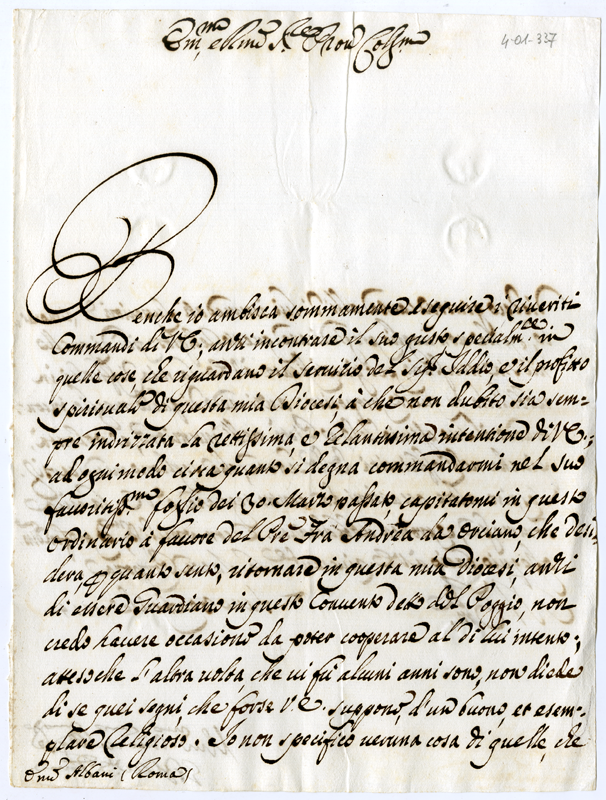 Em.mo e R.mo S.re Pron Col.mo
4-01-337
Benche io ambisca sommamente eseguire i riveriti
Commandi di V.E., anzi incontrare il suo gusto specialm.te in
quelle cose, che riguardano il servitio del Sig.r Iddio, e il profitto
spirituale di questa mia Diocesi, à che non dubito sia sem=
pre indrizzata la rettissima, e zelantissima intentione di V.E.;
ad ogni modo circa quanto si degna commandarmi nel suo
favoritiss.mo foglio dei 30 Marzo passato, capitatomi in questo
ordinario à favore del Pre Fra Andrea da Orciano, che desi
dera, p quanto sento, ritornare in questa mia Diocesi, anzi
di essere Guardiano in questo Convento detto del Poggio, non
credo havere occasione da poter cooperare al di lui intento;
atteso che l'altra volta che vi fù alcuni anni sono, non diede
di se quei segni, che forse V.E. suppone, d'un buono, et esem=
plare Religioso. Io non specifico veruna cosa di quelle, che
Em.o Albani (Roma)